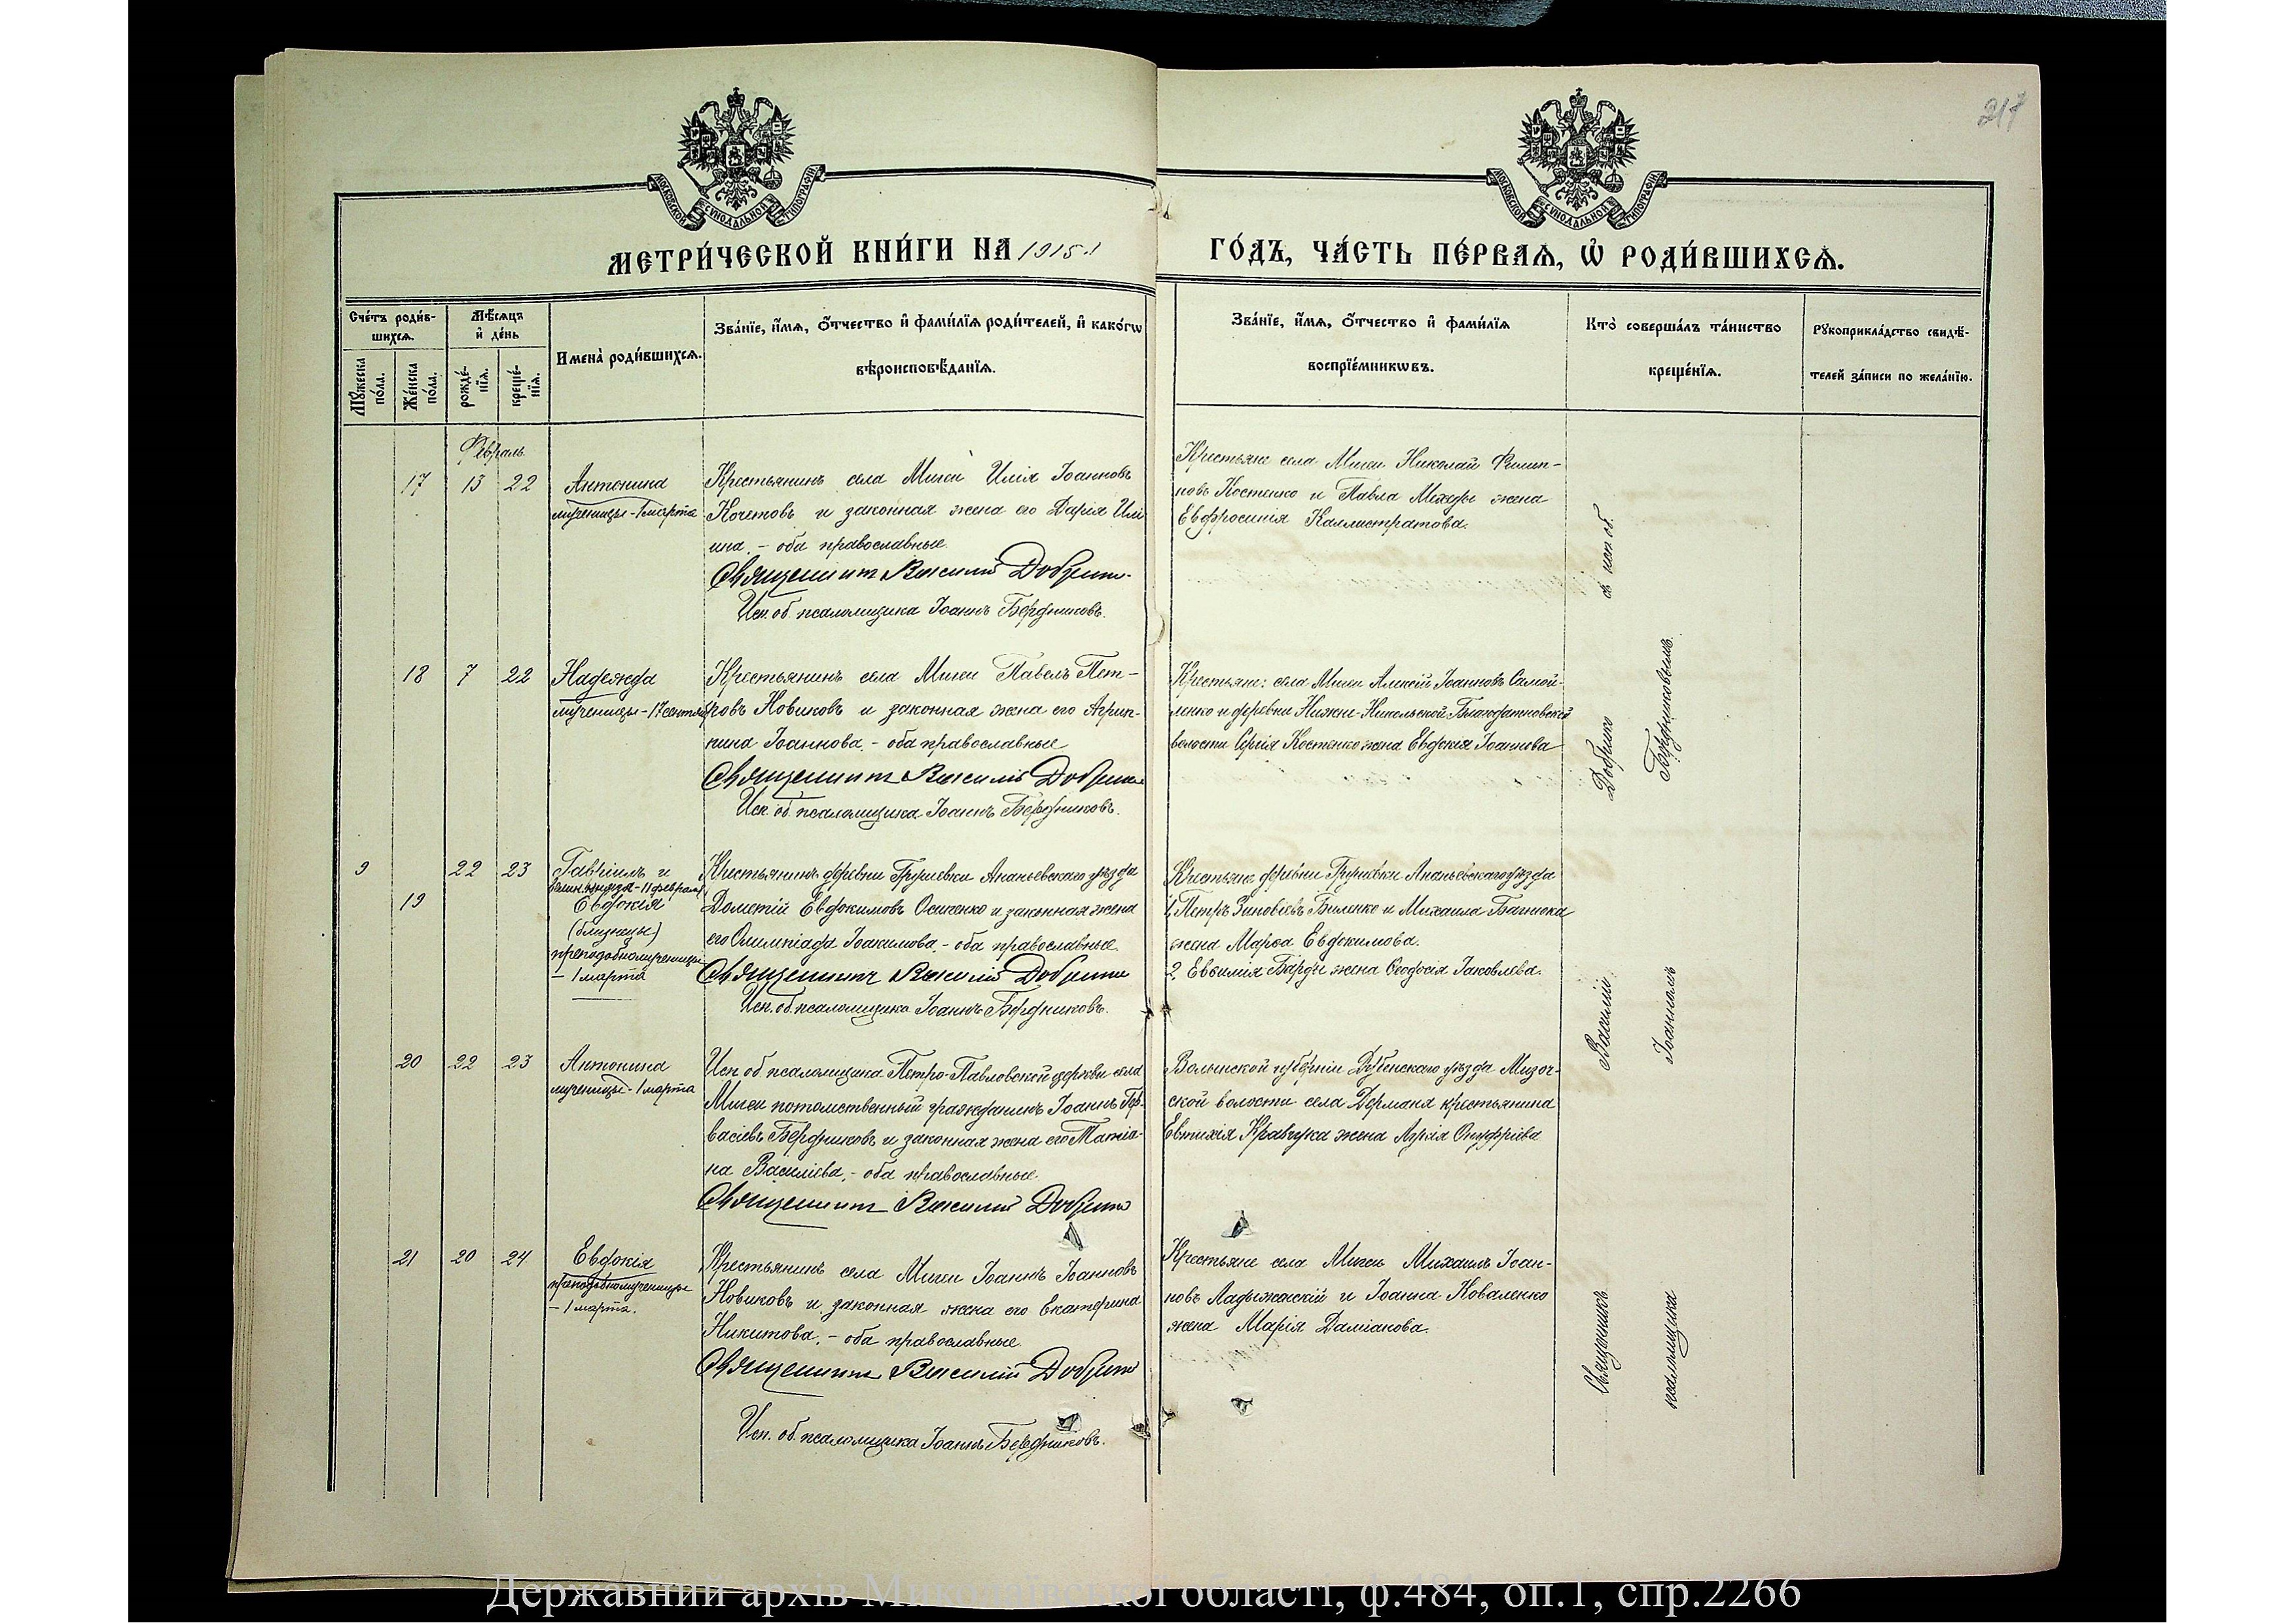 217
МОСКОВСКОЙ СѴНОДАЛЬНОЙ ТИПОГРАФІИ
МОСКОВСКОЙ СѴНОДАЛЬНОЙ ТИПОГРАФІИ
МЕТРИ́ЧЕСКОЙ КНИ́ГИ НА 1915 г.
ГО́ДЪ, ЧА́СТЬ ПЕ́РВАѦ, Ѡ҆ РОДИ́ВШИХСѦ.
Сче́тъ роди́в-
шихсѧ.
Мꙋ́жеска
по́ла.
Же́нска
по́ла.
Мѣ́сѧцъ
и҆ де́нь
рожде́-
нїѧ.
креще́-
нїѧ.
Имена̀ роди́вшихсѧ.
Зва́нїе, и҆́мѧ, ѻ҆́тчество и҆ фами́лїѧ роди́телей, и҆ како́гѡ
вѣроисповѣ́данїѧ.
Зва́нїе, и҆́мѧ, ѻ҆́тчество и҆ фами́лїѧ
воспрїе́мникѡвъ.
Кто̀ соверша́лъ та́инство
креще́нїѧ.
Рꙋкоприкла́дство свидѣ́-
телей за́писи по жела́нїю.
Февраль
17 13 22
Антонина
мученицы - 1 марта
Крестьянинъ села Мигеи Илія Іоанновъ
Кочетовъ и законная жена его Дарія Или
ина. - оба православные.
Священникъ Василій Добрин
Исп. об. псаломщика Іоаннъ Бердниковъ.
Крестьяне села Мигеи Николай Филип-
повъ Костенко и Павла жена
Евфросинія Каллистратова.
18 7 22
Надежда
мученицы - 17 сентяб
Крестьянинъ села Мигеи Павелъ Пет-
ровъ Новиковъ и законная жена его Агрип-
пина Іоаннова. - оба православные
Священникъ Василій Добрин
Исп. об. псаломщика Іоаннъ Бердниковъ.
Крестьяне: села Мигеи Алексій Іоанновъ Самой-
ленко и деревни Нижне-Никольской Благодатновской
волости Сергія Костенко жена Евдокія Іоаннова
9 22 23
19
Гавріилъ и
велик. князя - 11 февраля
Евдокія
(близнецы)
преподобномученицы
- 1 марта
Крестьянинъ деревни Грушевки Ананьевскаго уѣзда
Дометій Евдокимовъ Осипенко и законная жена
его Олимпіада Іоакимова. - оба православные.
Священникъ Василій Добрин
Исп. об. псаломщика Іоаннъ Бердниковъ.
Крестьяне деревни Грушевки Ананьевскаго уѣзда
1, Петръ Зиновіевъ Биленко и Михаила
жена Марѳа Евдокимова.
2, Евѳимія жена Ѳеодосія Іаковлева.
20 22 23
Антонина
мученицы - 1 марта
Исп. об. псаломщика Петро-Павловской церкви села
Мигеи потомственный гражданинъ Іоаннъ Гер-
васіевъ Бердниковъ и законная жена его Татіа-
на Василіева, - оба православные.
Священникъ Василій Добрин
Волынской губерніи Дубенскаго уѣзда Мизоч-
ской волости села Дермана крестьянина
Евтихія Кравчука жена Онуфріева
21 20 24
Евдокія
преподобномученицы
- 1 марта.
Крестьянинъ села Мигеи Іоаннъ Іоанновъ
Новиковъ и законная жена его Екатерина
Никитова. - оба православные.
Священникъ Василій Добрин
Исп. об. псаломщика Іоаннъ Бердниковъ.
Крестьяне села Мигеи Михаилъ Іоан-
новъ Ладыжинскій и Іоанна Коваленко
жена Марія Даміанова.
Священникъ Василій съ исп. об.
псаломщика Іоанномъ Бердниковымъ.
Державний архів Миколаївської області, ф.484, оп.1, спр.2266